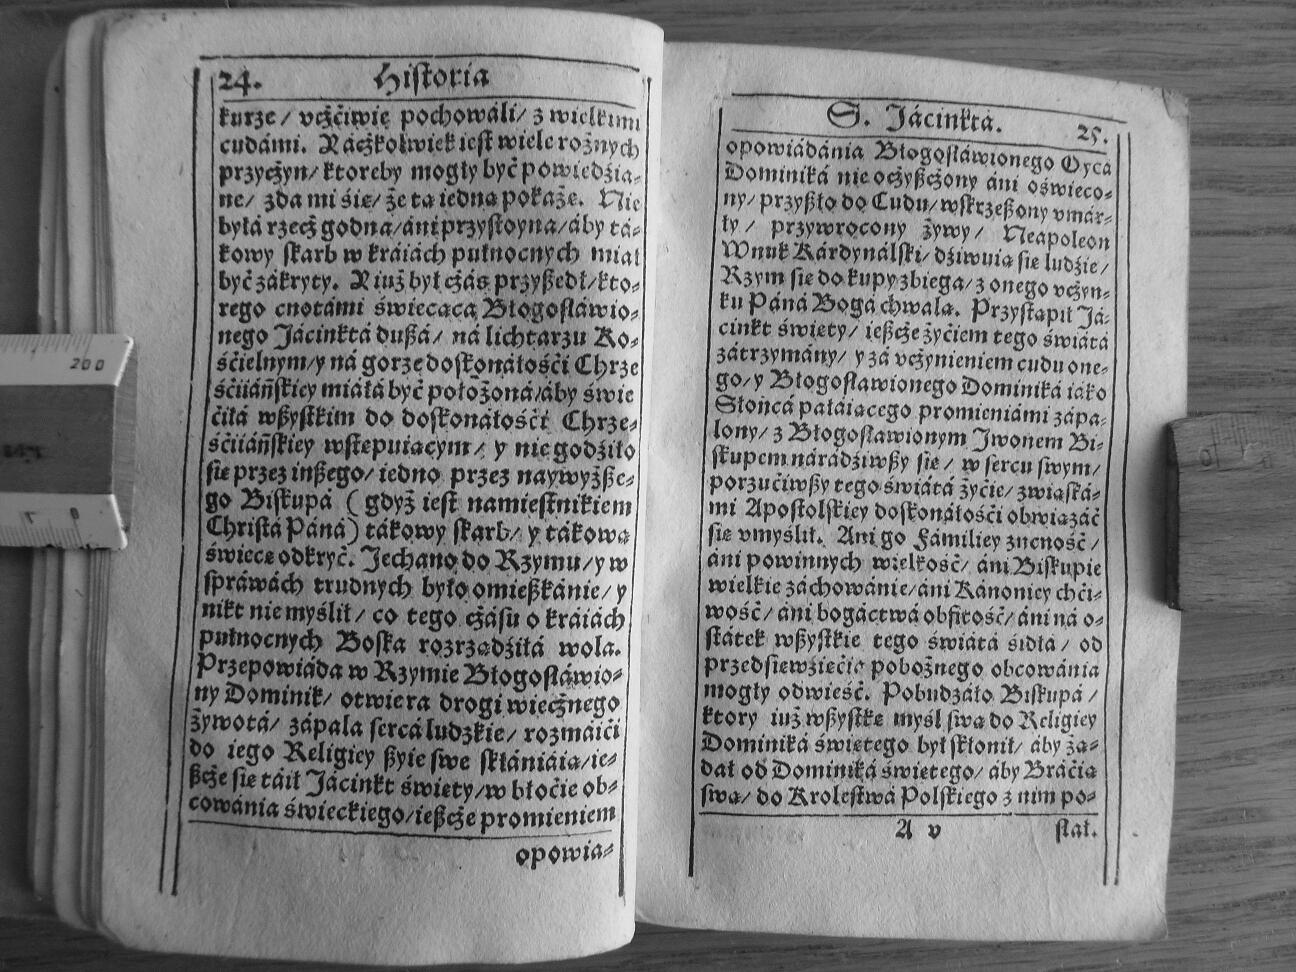 24. Historia
kurze / vcżćiwię pochowáli / z wielkimi
cudámi. Naczkolwiek iest wiele rożnych
przyczyn / ktoreby mogły być powiedźia-
ne / zda mi śię / że ta iedna pokaże. Nie
byłá rzecż godna / áni przystoyna / áby tá-
kowy skarb w kráiách pułnocnych miał
być zákryty. Niuż był cżás przyßedł / kto-
rego cnotámi świecącą Błogosłáwio-
nego Jácinktá dußá / ná lichtarzu Ko-
śćielnym / y ná gorze doskonáłośći Chrze
śćiiáńskiey miáłá być położoná / áby świe
ćiłá wßystkim do doskonáłośći Chrze-
śćiiáńskiey wstepuiącym / y nie godźiło
sie przez inßego / iedno przez naywyżße-
go Biskupá ( gdyż iest namiestnikiem
Christá Páná) tákowy skarb / y tákową
świece odkryć. Jechano do Rzymu / y w
spráwách trudnych było omießkánie / y
nikt nie myślił / co tego cżásu o kráiách
pułnocnych Boska rozrządźiłá wola.
Przepowiáda w Rzymie Błogosłáwio-
ny Dominik / otwiera drogi wiecżnego
żywotá / zápala sercá ludzkie / rozmáići
do iego Religiey ßyie swe skłániáia / ie-
ßcże sie táił Jácinkt święty / w błoćie ob-
cowánia świeckiego / ießcże promieniem
opowia-
S. Jácinktá. 25.
opowiádánia Błogosłáwionego Oycá
Dominiká nie ocżyßcżony áni oświeco-
ny / przyßło do Cudu / wskrzeßony vmár-
ły / przywrocony żywy / Neapoleon
Wnuk Kárdynálski / dźiwuią sie ludźie /
Rzym sie do kupy zbiega / z onego vcżyn-
ku Páná Bogá chwalą. Przystąpił Já-
cinkt święty / ießcże żyćiem tego świátá
zátrzymány / y zá vcżynieniem cudu one-
go / y Błogosłáwionego Dominiká iáko
Słońcá pałáiącego promieniámi zápa-
lony / z Błogosławionym Jwonem Bi-
skupem nárádźiwßy sie / w sercu swym /
porzućiwßy tego świátá żyćie / związká-
mi Apostolskiey doskonáłośći obwiązáć
sie vmyślił. Ani go Fámiliey zacność /
áni powinnych wielkość / áni Biskupie
wielkie záchowánie / áni Kánoniey chći-
wość / áni bogáctwá obfitość / áni ná o-
státek wßystkie tego świátá śidłá / od
przedsiewźiećia pobożnego obcowánia
mogły odwieść. Pobudzáło Biskupá /
ktory iuż wßystkę myśl swą do Religiey
Dominiká świętego był skłonił / áby żą-
dał od Dominiká świętego / áby Bráćią
swą / do Krolestwá Polskiego z nim po-
A v słał.